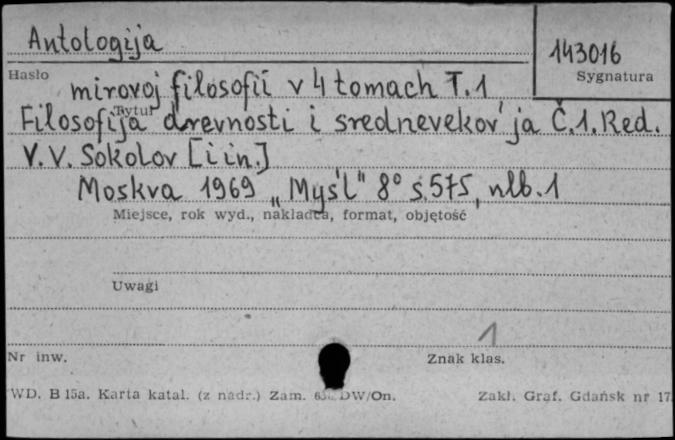 Antologija
143016
Hasło
Sygnatura
mirovoj filosofii v 4 tomach T.1
Tytuł
Filosofija drevnosti i srednevekov'ja Č.1. Red.
V. V. Sokolov [i in.]
Moskva 1969 „Myśl" 8° s.575, nlb.1
Miejsce, rok wyd., nakładca, format, objętość
Uwagi
1
Nr inw.
Znak klas.
WD. B 15a. Karta katal. (z nadr.) Zam. DW/On.
Zakł. Graf. Gdańsk nr 17